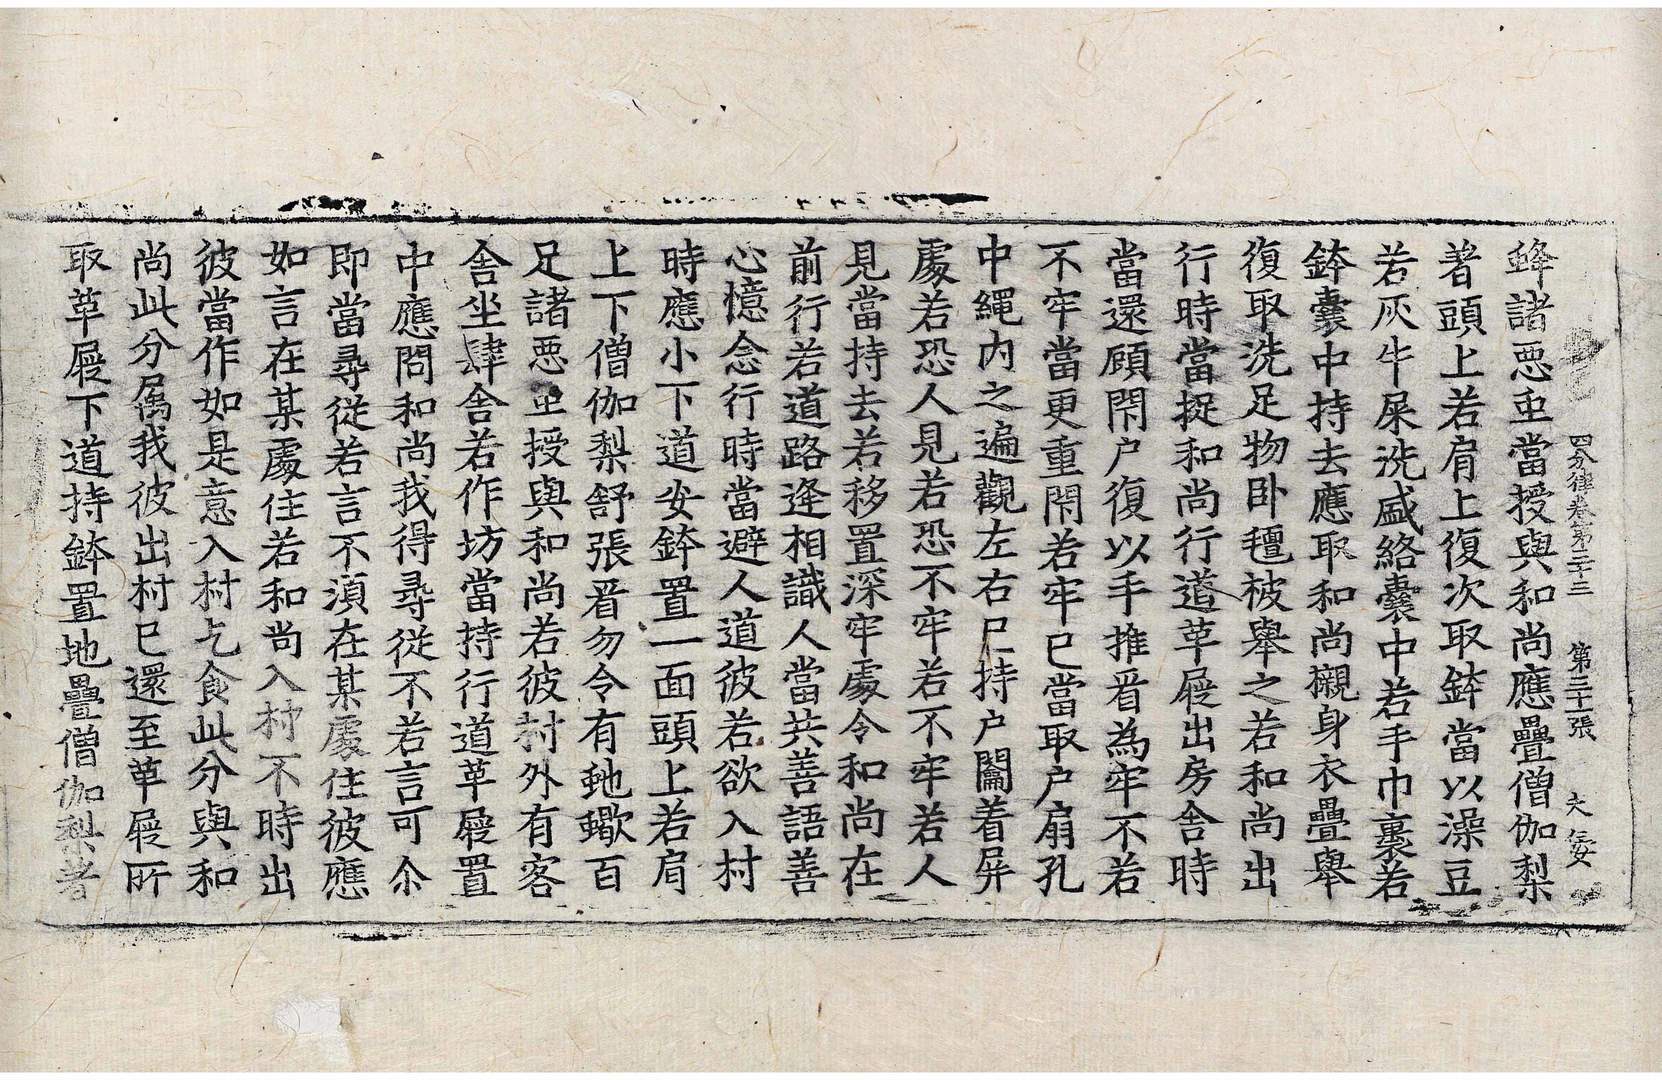 四分律卷第三十三　第三十張　大　妾
蜂諸悪虫當授與和尚應疊僧伽梨
著頭上若肩上復次取鉢當以澡豆
若灰牛屎洗盛絡囊中若手巾裹若
鉢囊中持去應取和尚襯身衣疊舉
復取洗足物卧氊被舉之若和尚出
行時當捉和尚行道革屣出房舍時
當還顧閇户復以手推看為牢不若
不牢當更重閇若牢已當取户扇孔
中繩内之遍觀左右已持户闟着屏
處若恐人見若恐不牢若不牢若人
見當持去若移置深牢處令和尚在
前行若道路逢相識人當共善語善
心憶念行時當避人道彼若欲入村
時應小下道安鉢置一面頭上若肩
上下僧伽梨舒張看勿令有虵蠍百
足諸悪虫授與和尚若彼村外有客
舍坐肆舍若作坊當持行道革屣置
中應問和尚我得尋從不若言可尒
即當尋從若言不須在某處住彼應
如言在某處住若和尚入村不時出
彼當作如是意入村乞食此分與和
尚此分属我彼出村已還至革屣所
取革屣下道持鉢置地疊僧伽梨著